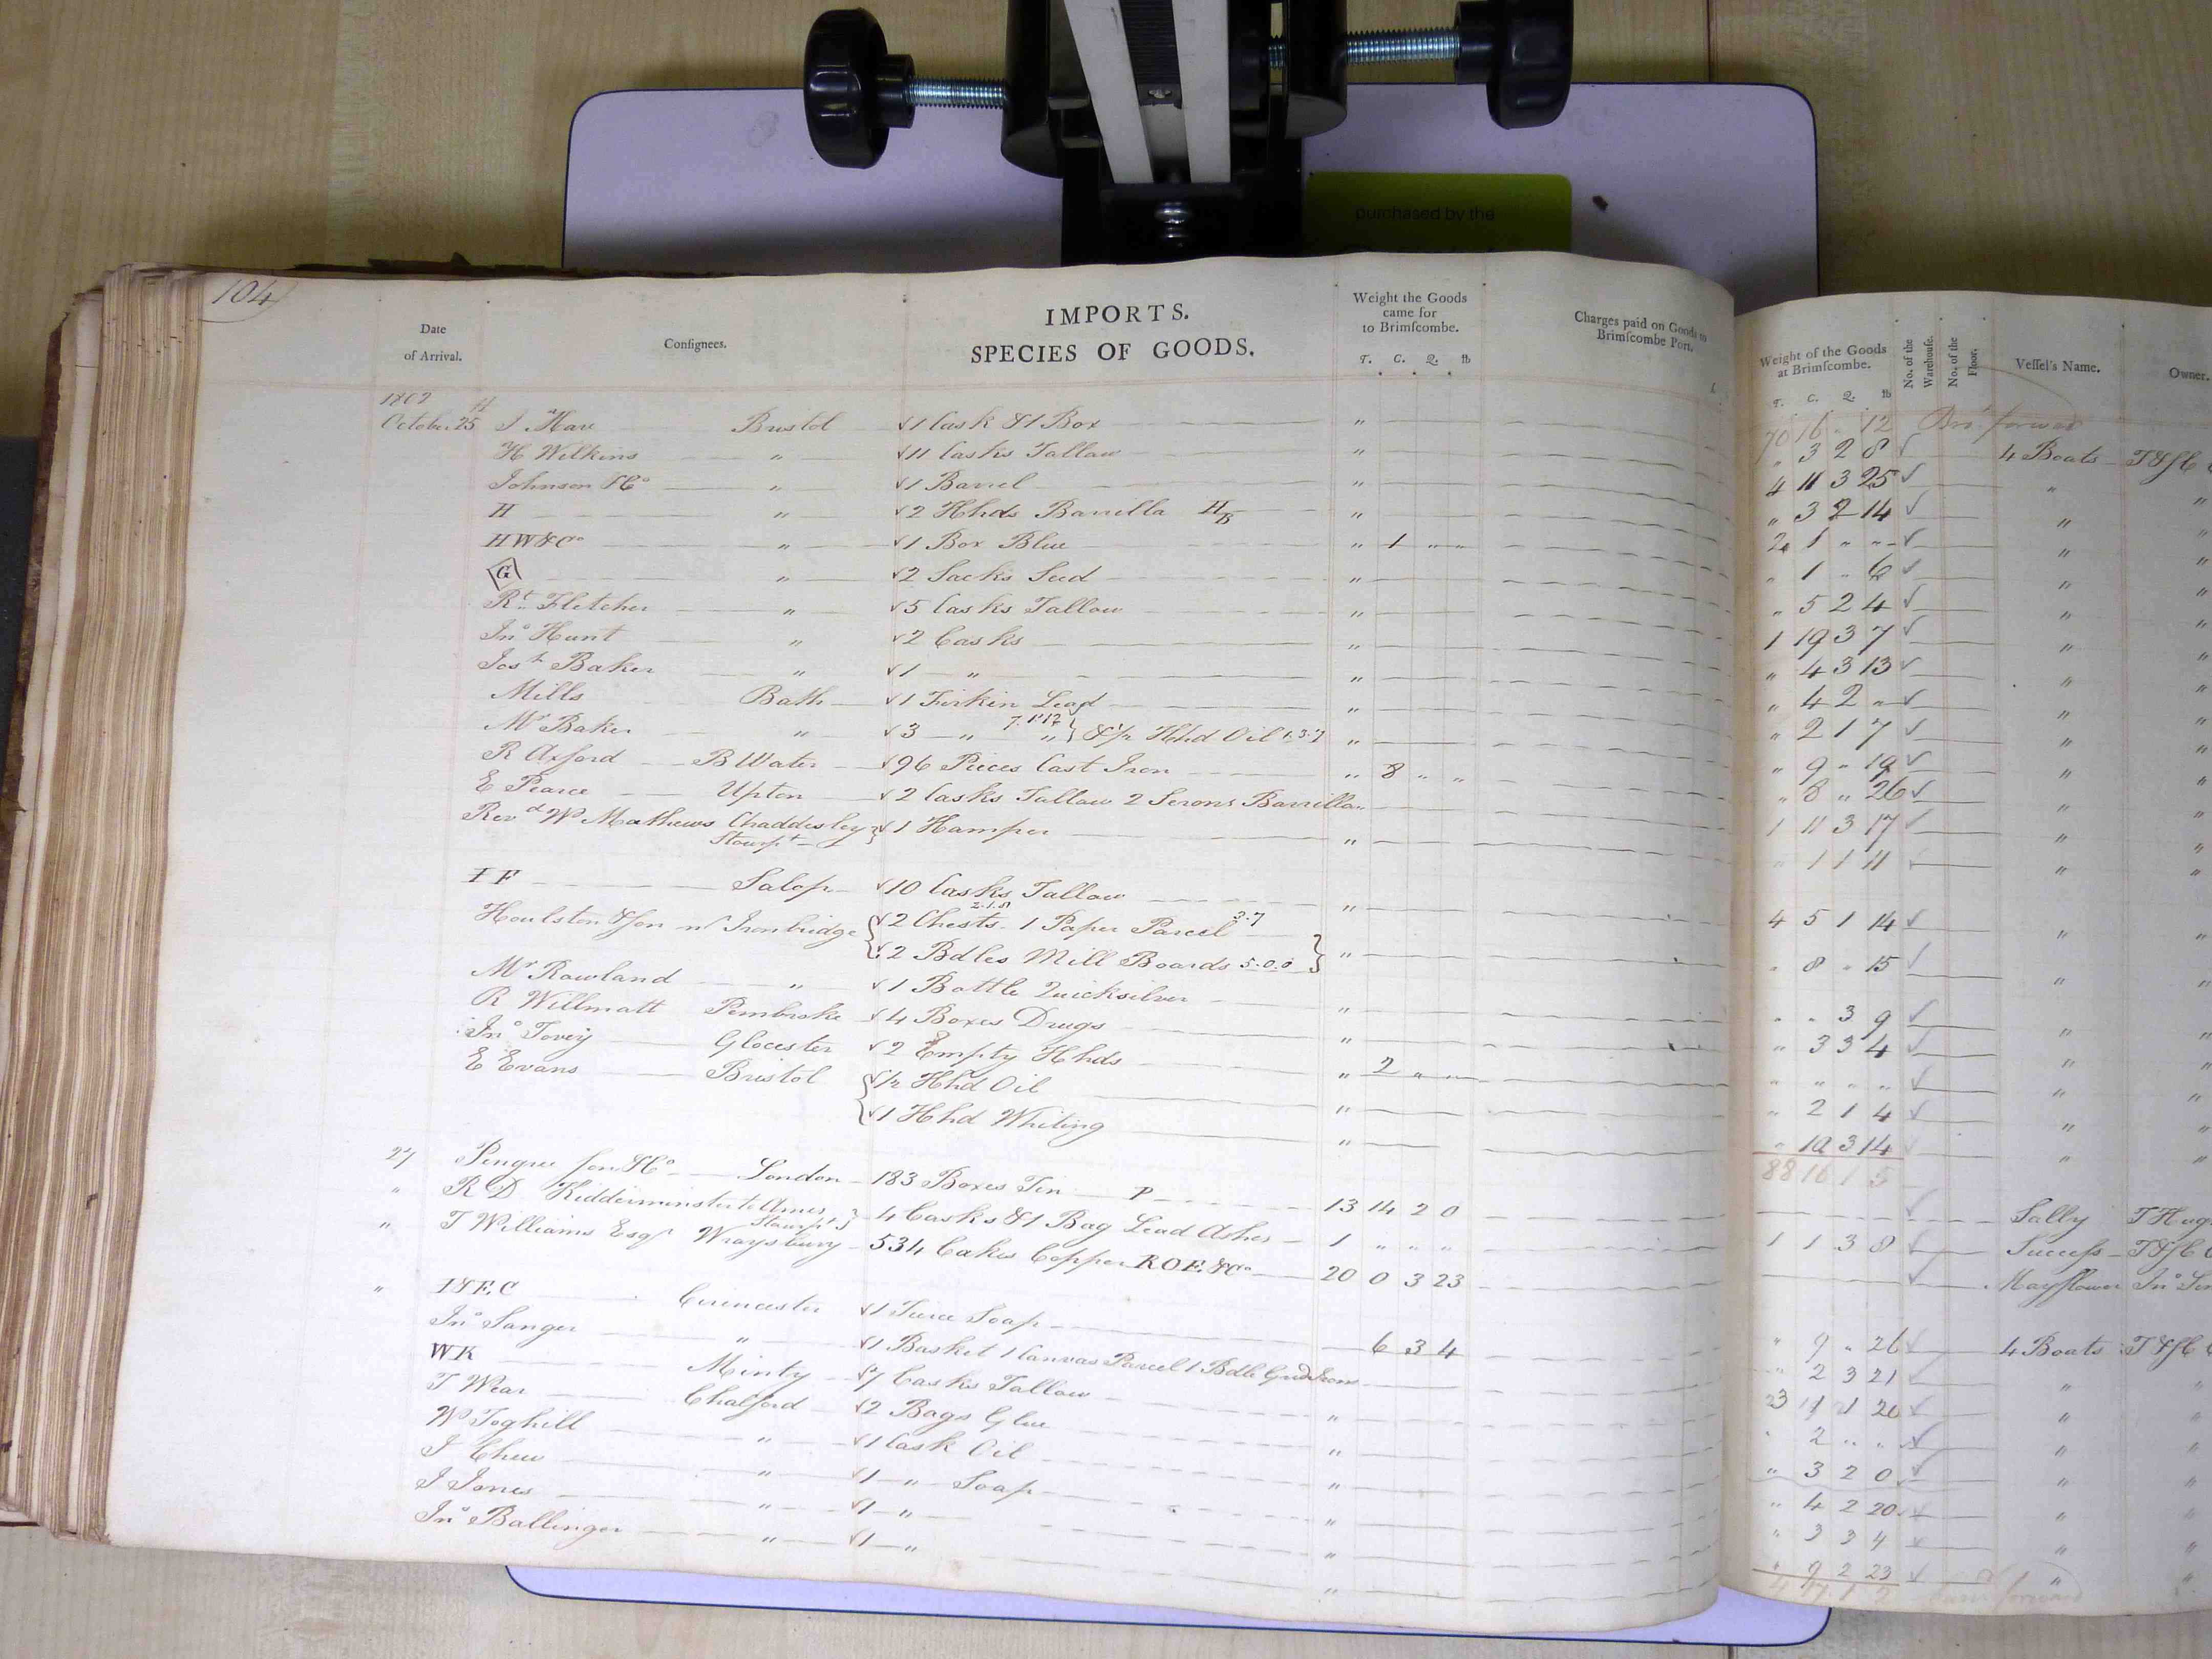 purchased by the
104
IMPORTS.
SPECIES OF GOODS.
Date of Arrival.
Consignees.
Weight the Goods came for to Brimscombe.
T. C. Q. lb
Charges paid on Goods to Brimscombe Port.
Weight of the Goods at Brimscombe.
T. C. Q. lb
No. of the Warehouse.
No. of the Floor.
Vessel's Name.
Owner.
1802
70 16 " 12 Bro.t forward
October 25 J Hare Bristol √1 Cask & 1 Box " " 3 2 8 √ 4 Boats
H Wilkins " √11 Casks Tallow " 4 11 3 25 √ "
Johnson & Co " √1 Barrel " " 3 2 14 √ "
H " √2 Hhds Barrilla HB " 2 1 " " √ "
HW&Co " √1 Box Blue " 1 " " " 1 " 6 √ "
G " √2 Sacks Seed " " 5 2 4 √ "
Rt Fletcher " √5 Casks Tallow " 1 19 3 7 √ "
Jno Hunt " √2 Casks " " 4 3 13 √ "
Josh Baker " √1 " " " 4 2 " √ "
Mills Bath √1 Firkin Lead " " 2 1 7 √ "
Mr Baker " √3 " 7.1.12 " } & 1/2 Hhd Oil 1.3.7 " " 9 " 19 √ "
R Axford B Water √96 Pieces Cast Iron " 8 " " " 8 " 26 √ "
E Pearce Upton √2 Casks Tallow 2 Serons Barrilla " 1 11 3 17 √ "
Revd W Mathews Chaddesley Stourpt } √1 Hamper " " 1 1 11 √ "
IF Salop √10 Casks Tallow " 4 5 1 14 √ "
Houlston & Son nr Ironbridge { √2 Chests 2.1.8 1 Paper Parcel 3.7
√2 Bdles Mill Boards 5.0.0 } " " 8 " 15 √ "
Mr Rowland " √1 Bottle Quicksilver " " " 3 9 √ "
R Willmatt Pembroke √4 Boxes Drugs " " 3 3 4 √ "
Jno Tovey Glocester √2 Empty Hhds " 2 " " " " " " √ "
E Evans Bristol { √1/2 Hhd Oil " " 2 1 4 √ "
√1 Hhd Whiting " " 10 3 14 √ "
88 16 1 5
27 Pengree Son & Co London 183 Boxes Tin P 13 14 2 0 √ Sally
" R D Kidderminster to Ames Stourpt } 4 Casks & 1 Bag Lead Ashes 1 " " " 1 1 3 8 √ Success
" T Williams Esqr Wraysbury 534 Cakes Copper R.O.E.&Co 20 0 3 23 √ Mayflower
" I&F.C Cirencester √1 Tierce Soap 6 3 4 " 9 " 26 √ 4 Boats
Jno Sanger " √1 Basket 1 Canvas Parcel 1 Bdle " 2 3 21 √ "
WK Minty √7 Casks Tallow " √ "
T Wear Chalford √2 Bags Glue " " 2 " " √ "
W Toghill " √1 Cask Oil " " 3 2 0 √ "
J Chew " √1 " Soap " " 4 2 20 √ "
J Jones " √1 " " " 3 3 4 √ "
Jno Ballinger " √1 " " " 9 2 23 √ "
forward